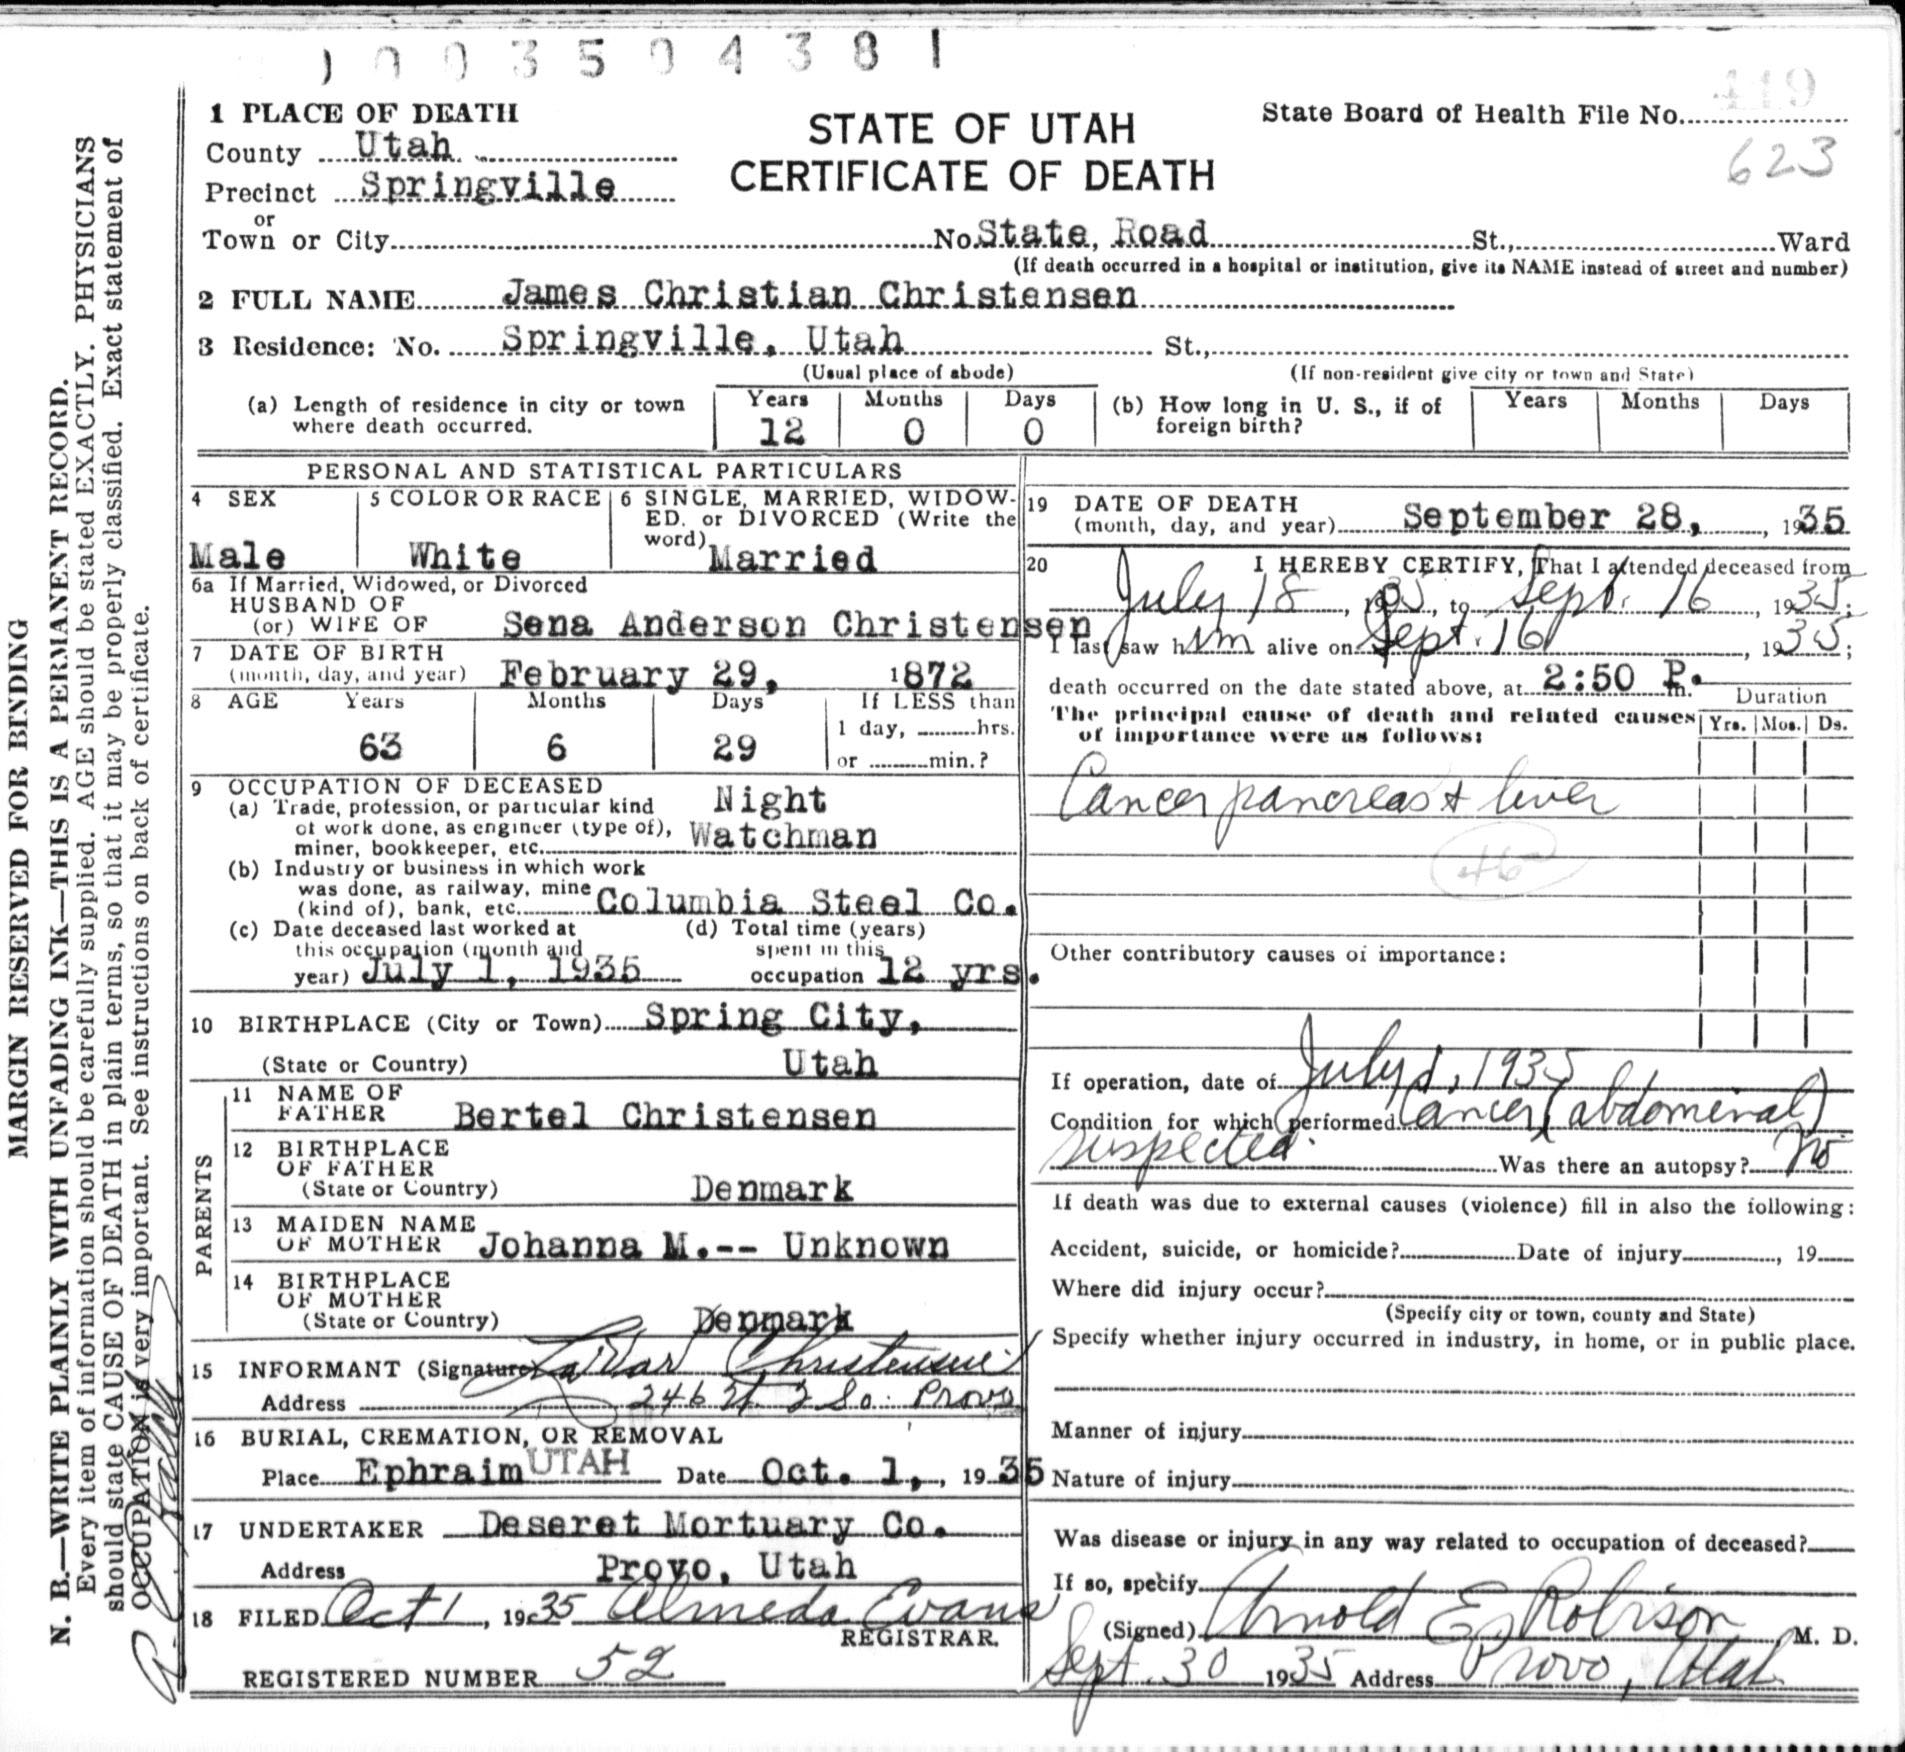 1003504381
1 PLACE OF DEATH
County Utah
Precinct Springville
or
Town or City
STATE OF UTAH
CERTIFICATE OF DEATH
State Board of Health File No.
449
623
No. State, Road St., Ward
(If death occurred in a hospital or institution, give its NAME instead of street and number)
2 FULL NAME James Christian Christensen
3 Residence: No. Springville, Utah St.,
(Usual place of abode) (If non-resident give city or town and State)
(a) Length of residence in city or town where death occurred.
Years Months Days
12 0 0
(b) How long in U. S., if of foreign birth?
Years Months Days
PERSONAL AND STATISTICAL PARTICULARS
4 SEX
Male
5 COLOR OR RACE
White
6 SINGLE, MARRIED, WIDOW-
ED, or DIVORCED (Write the
word)
Married
6a If Married, Widowed, or Divorced
HUSBAND OF
(or) WIFE OF Sena Anderson Christensen
7 DATE OF BIRTH
(month, day, and year) February 29, 1872
8 AGE Years Months Days If LESS than
1 day, hrs.
63 6 29
or min.?
9 OCCUPATION OF DECEASED
(a) Trade, profession, or particular kind
of work done, as engineer (type of),
miner, bookkeeper, etc.
Night
Watchman
(b) Industry or business in which work
was done, as railway, mine
(kind of), bank, etc. Columbia Steel Co.
(c) Date deceased last worked at
this occupation (month and
year) July 1, 1935
(d) Total time (years)
spent in this
occupation 12 yrs.
10 BIRTHPLACE (City or Town) Spring City,
(State or Country) Utah
PARENTS
11 NAME OF
FATHER Bertel Christensen
12 BIRTHPLACE
OF FATHER
(State or Country) Denmark
13 MAIDEN NAME
OF MOTHER Johanna M.-- Unknown
14 BIRTHPLACE
OF MOTHER
(State or Country) Denmark
15 INFORMANT (Signature) LaVar Christensen
Address 246 W. 2 So. Provo
16 BURIAL, CREMATION, OR REMOVAL
Place Ephraim UTAH Date Oct. 1, 1935
17 UNDERTAKER Deseret Mortuary Co.
Address Provo, Utah
18 FILED Oct 1, 1935 Almeda Evans
REGISTRAR.
REGISTERED NUMBER 52
19 DATE OF DEATH
(month, day, and year) September 28, 1935
20 I HEREBY CERTIFY, That I attended deceased from
July 18, 1935, to Sept. 16, 1935;
I last saw him alive on Sept. 16, 1935;
death occurred on the date stated above, at 2:50 P. m.
The principal cause of death and related causes
of importance were as follows:
Duration
Yrs. Mos. Ds.
Cancer pancreas & liver
46
Other contributory causes of importance:
If operation, date of July 1, 1935
Condition for which performed Cancer (abdominal)
suspected. Was there an autopsy? No
If death was due to external causes (violence) fill in also the following:
Accident, suicide, or homicide? Date of injury , 19
Where did injury occur?
(Specify city or town, county and State)
Specify whether injury occurred in industry, in home, or in public place.
Manner of injury
Nature of injury
Was disease or injury in any way related to occupation of deceased?
If so, specify
(Signed) Arnold E. Robison, M. D.
Sept. 30 1935 Address Provo, Utah
MARGIN RESERVED FOR BINDING
N. B.—WRITE PLAINLY WITH UNFADING INK—THIS IS A PERMANENT RECORD.
Every item of information should be carefully supplied. AGE should be stated EXACTLY. PHYSICIANS
should state CAUSE OF DEATH in plain terms, so that it may be properly classified. Exact statement of
OCCUPATION is very important. See instructions on back of certificate.